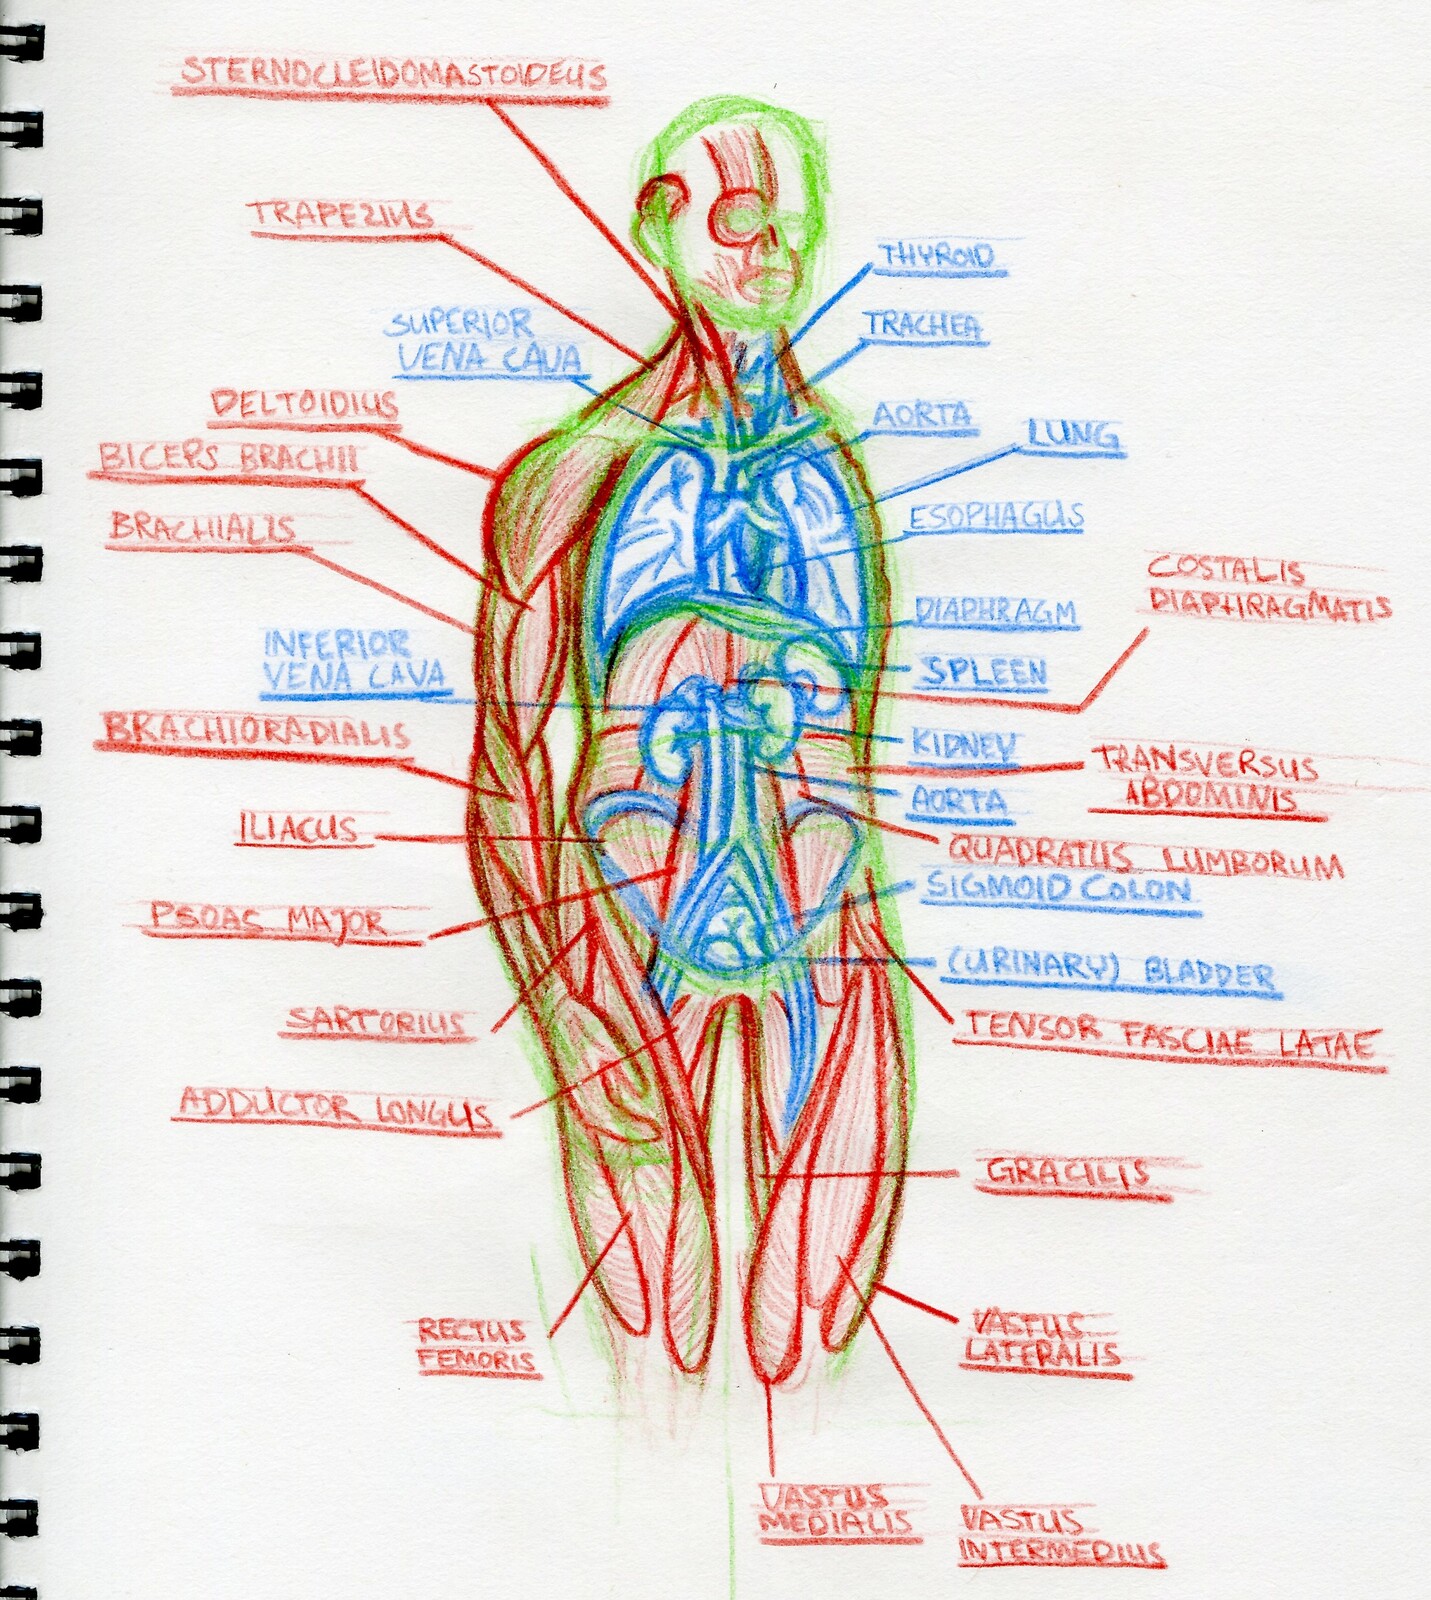 STERNOCLEIDOMASTOIDEUS
TRAPEZIUS
SUPERIOR
VENA CAVA
DELTOIDIUS
BICEPS BRACHII
BRACHIALIS
INFERIOR
VENA CAVA
BRACHIORADIALIS
ILIACUS
PSOAS MAJOR
SARTORIUS
ADDUCTOR LONGUS
RECTUS
FEMORIS
THYROID
TRACHEA
AORTA
LUNG
ESOPHAGUS
COSTALIS
DIAPHRAGMATIS
DIAPHRAGM
SPLEEN
KIDNEY
TRANSVERSUS
ABDOMINIS
AORTA
QUADRATUS LUMBORUM
SIGMOID COLON
(URINARY) BLADDER
TENSOR FASCIAE LATAE
GRACILIS
VASTUS
LATERALIS
VASTUS
MEDIALIS
VASTUS
INTERMEDIUS